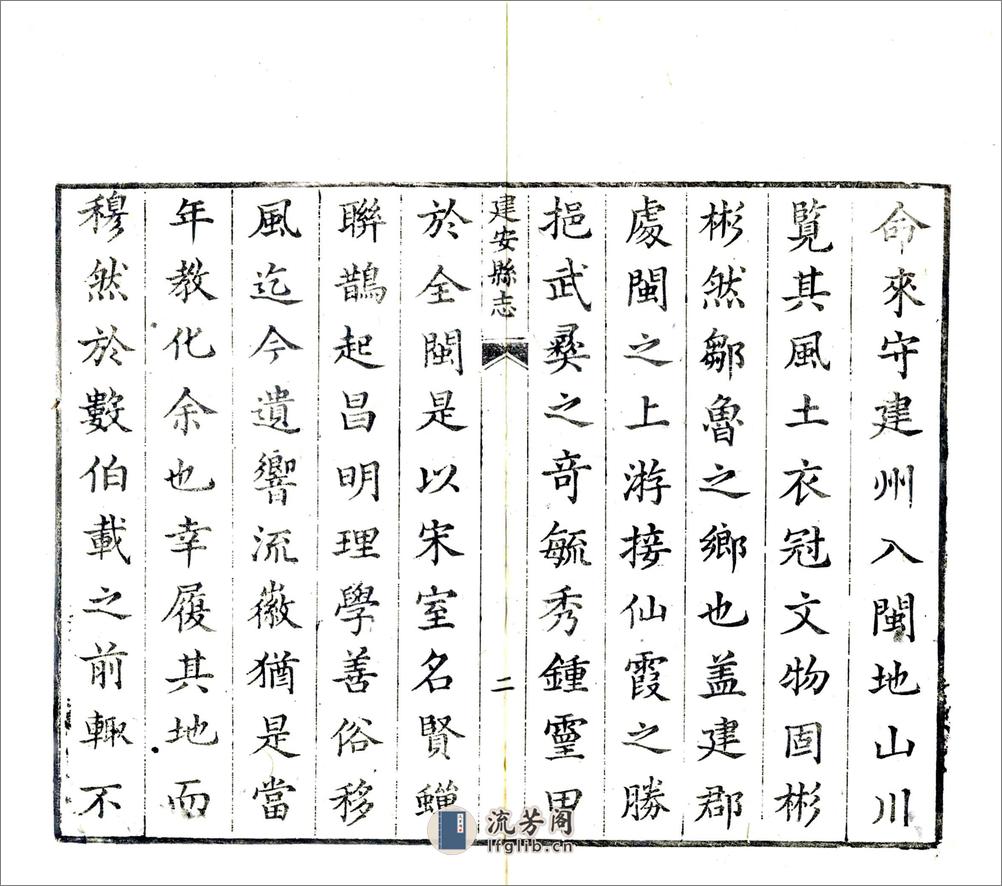 命來守建州入閩地山川
覽其風土衣冠文物固彬
彬然鄒魯之鄉也蓋建郡
處閩之上游接仙霞之勝
挹武彝之奇毓秀鍾靈甲
建安縣志
二
於全閩是以宋室名賢蟬
聯鵲起昌明理學善俗移
風迄今遺響流徽猶是當
年教化余也幸履其地而
穆然於數伯載之前輙不
流芳阁
lfglib.cn